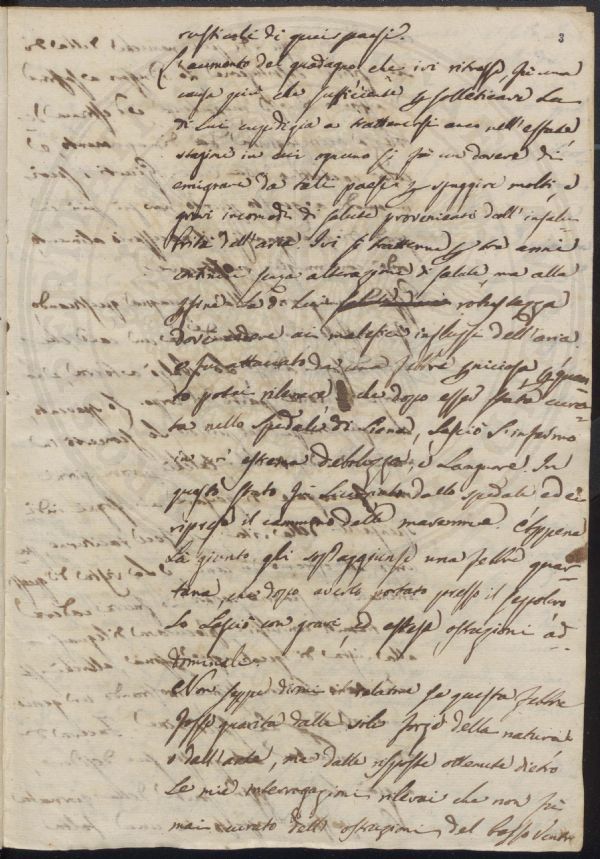 3
rusticali di quei paesi.
L'aumento del guadagno che ivi ritrasse fù una
causa più che sufficiente p solleticare La
di Lui cupidigia a trattenersi anco nell'estate
stagione in cui ognuno si fà un dovere di
emigrare da tali paesi p sfuggire molti, e
gravi incomodi di salute provenienti dall'insalu
brità dell'aria. Ivi si trattenne p tre anni
continui senza alterazione di salute, ma alla
fine La di Lui robustezza
dové cedere ai malefici influssi dell'aria
e fu attaccato da una febbre pniciosa p quan
to potei rilevare che dopo esser stata cura-
ta nello Spedale di Siena, Lasciò L'infermo
in estrema debolezza, e Languore. In
questo stato fù Licenziato dallo spedale ed ei
riprese il cammino delle maremme. Appena
Là giunto gli sopraggiunse una febbre quar-
tana, che dopo averlo portato presso il sepolcro
Lo Lasciò con gravi ed estese ostruzioni ad-
dominali.
Non seppe dirmi il relatore se questa febbre
fosse guarita dalle sole forze della natura
o dall'arte, ma dalle risposte ottenute dietro
Le mie interrogazioni rilevai che non fù
mai curato dell' ostruzioni del basso Ventre